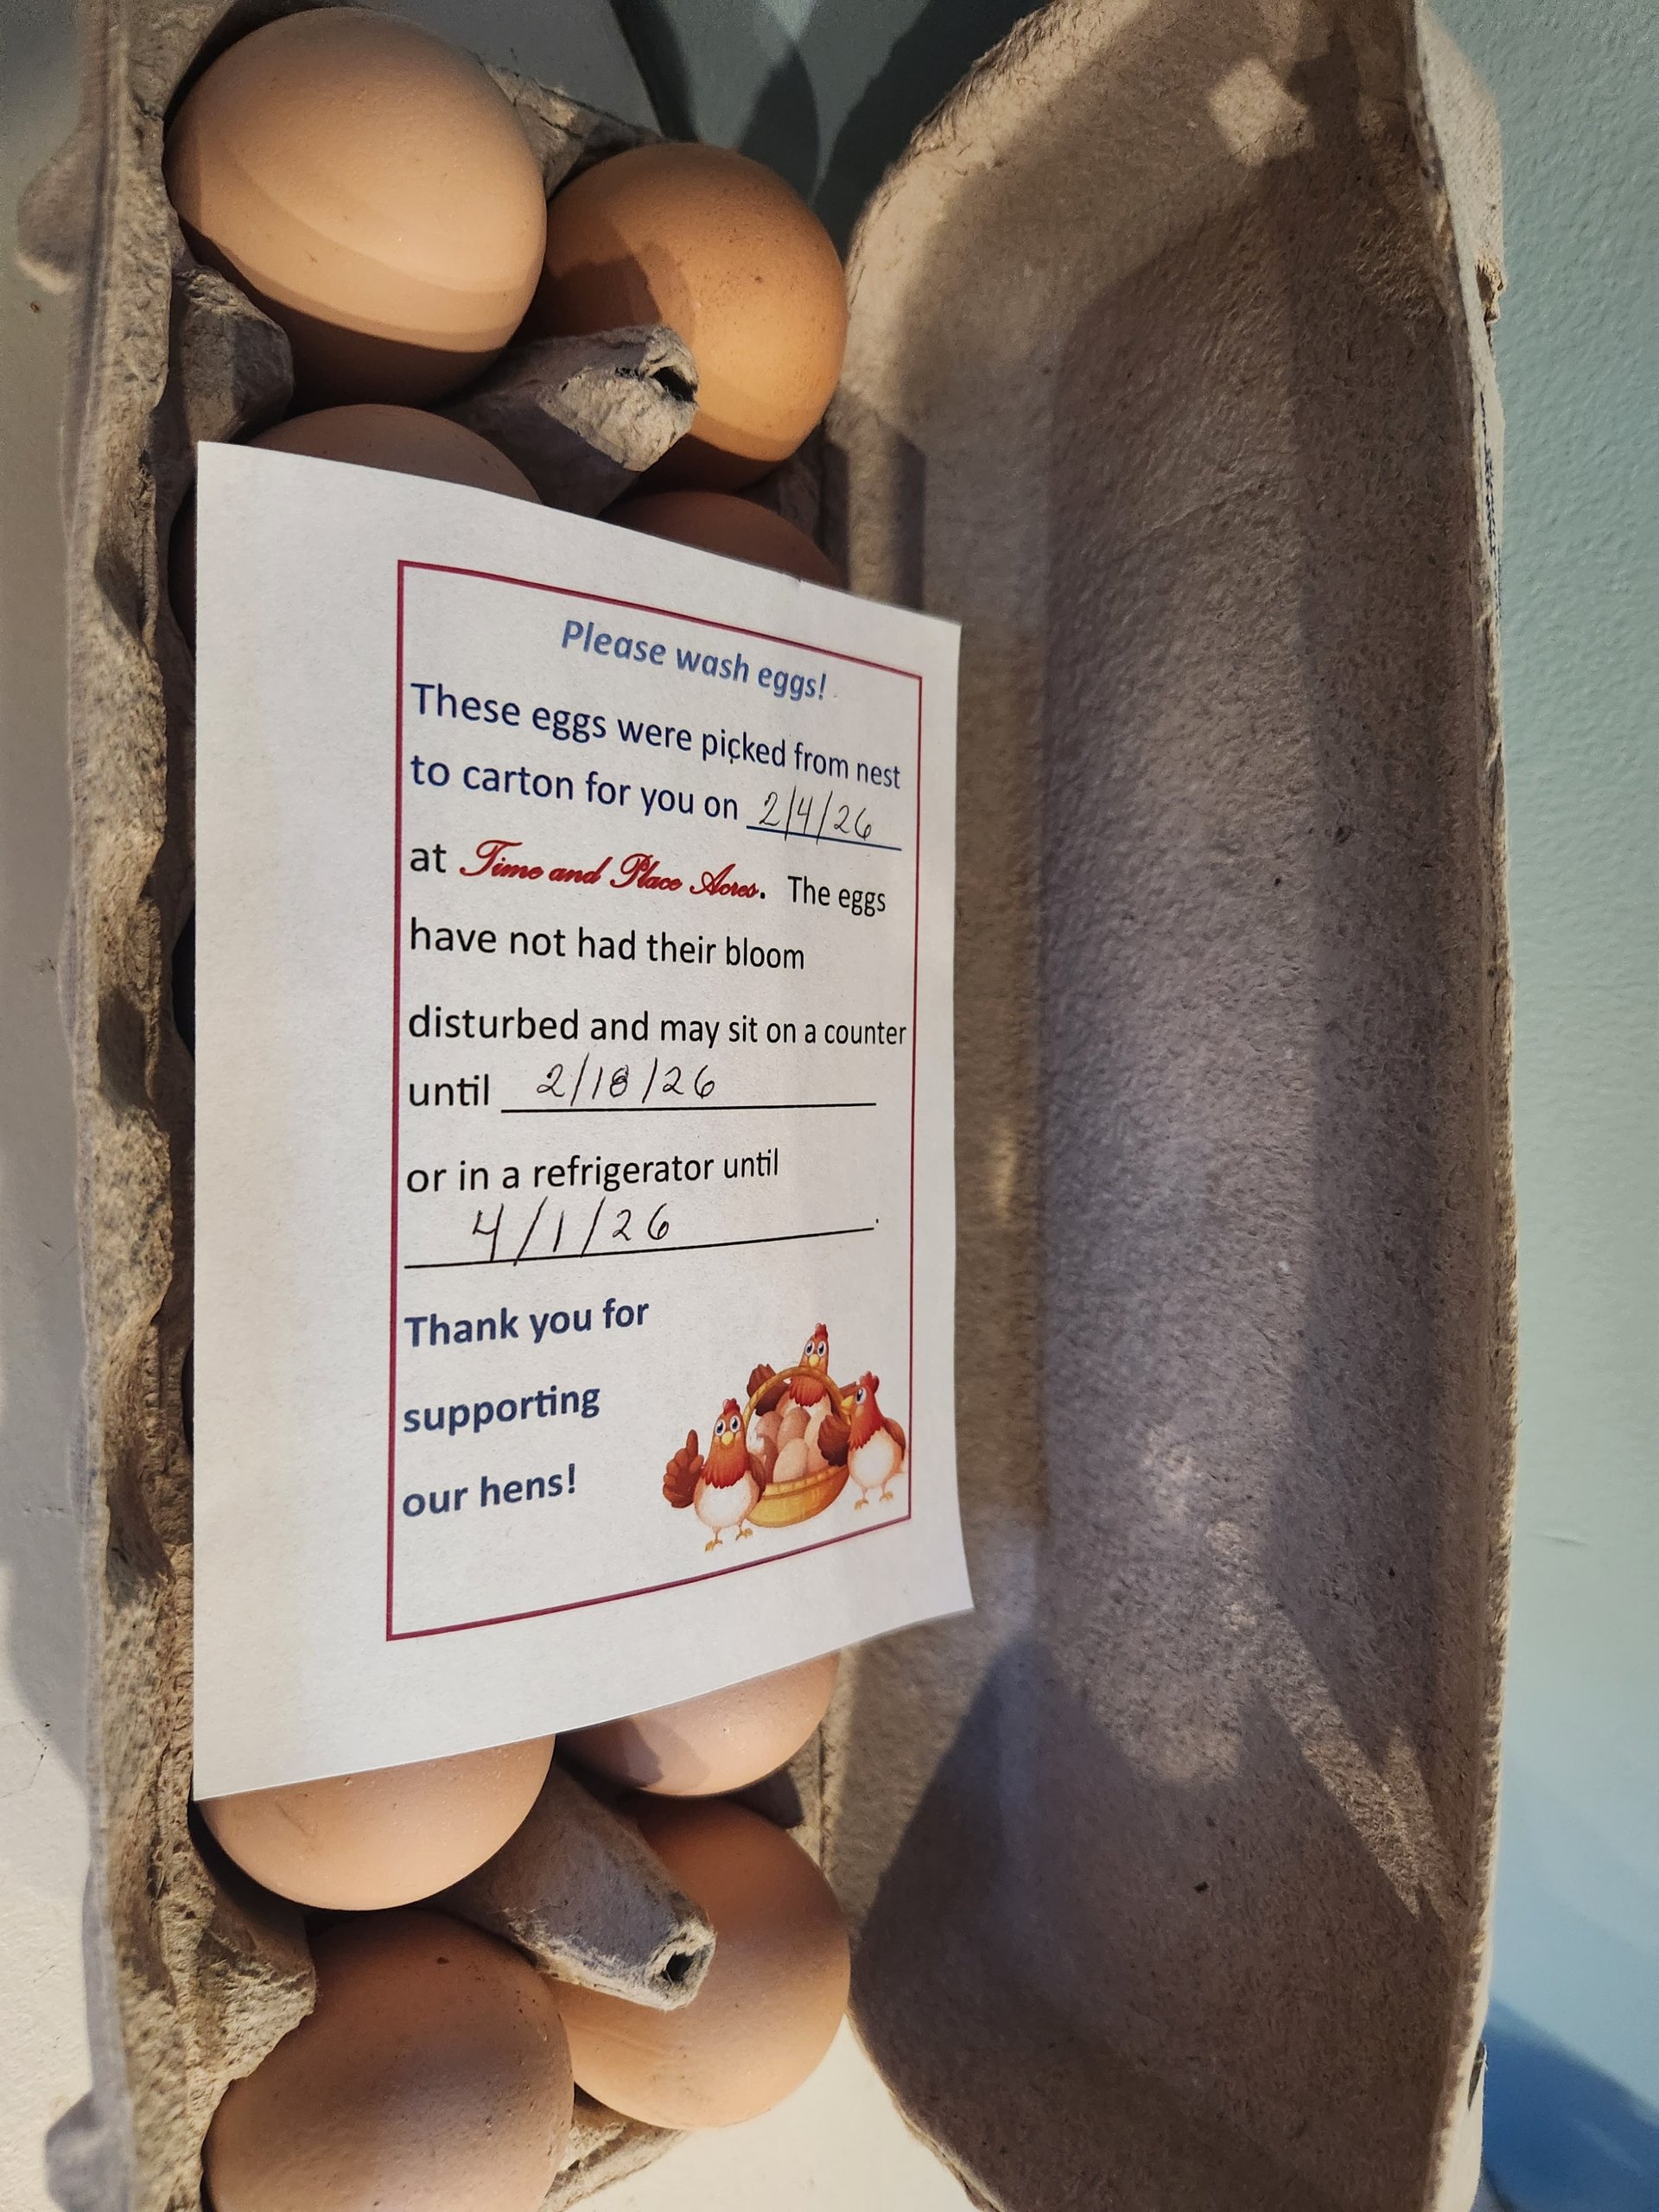 Please wash eggs!
These eggs were picked from nest
to carton for you on 2/4/26
at Time and Place Acres. The eggs
have not had their bloom
disturbed and may sit on a counter
until 2/18/26
or in a refrigerator until
4/1/26.
Thank you for
supporting
our hens!